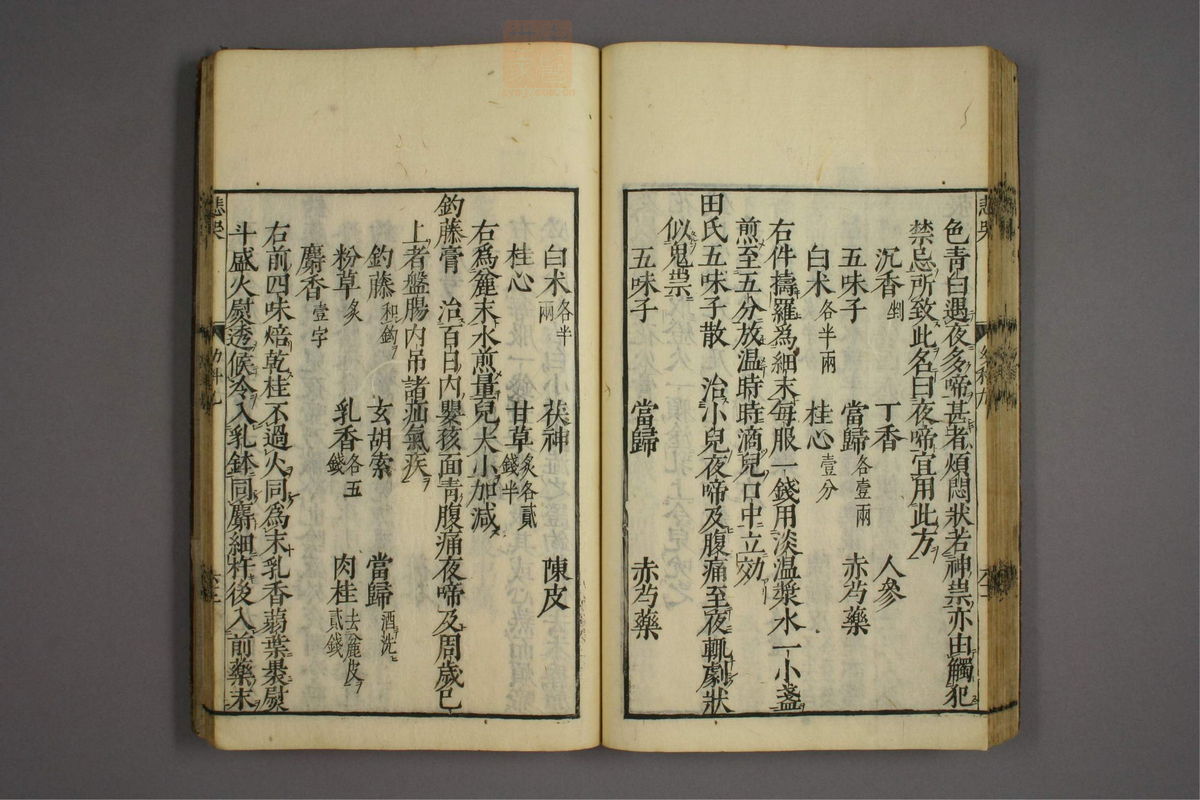 色青曰遇夜多啼甚者煩悶狀若神祟亦由觸犯
禁忌所致此名曰夜啼宜用此方
沉香剉 丁香 人參
五味子 當歸各壹兩 赤芍藥
白朮各半兩 桂心壹分
右件擣羅爲細末每服一錢用淡温漿水一小盞
煎至五分放温時時滴兒口中立効
田氏五味子散 治小兒夜啼及腹痛至夜輒劇狀
似鬼祟
五味子 當歸 赤芍藥
白朮各半兩 茯神 陳皮
桂心 甘草炙各貳錢半
右爲麄末水煎量兒大小加減
釣藤膏 治百日內嬰孩面青腹痛夜啼及周歲已
上者盤腸內吊諸疝氣疾
釣藤和鈎 玄胡索 當歸酒洗
粉草炙 乳香各五錢 肉桂去麄皮貳錢
麝香壹字
右前四味焙乾桂不過火同爲末乳香蒻葉裹熨
斗盛火熨透候冷入乳鉢同麝細杵後入前藥末
悲哭
悲哭
幼科九